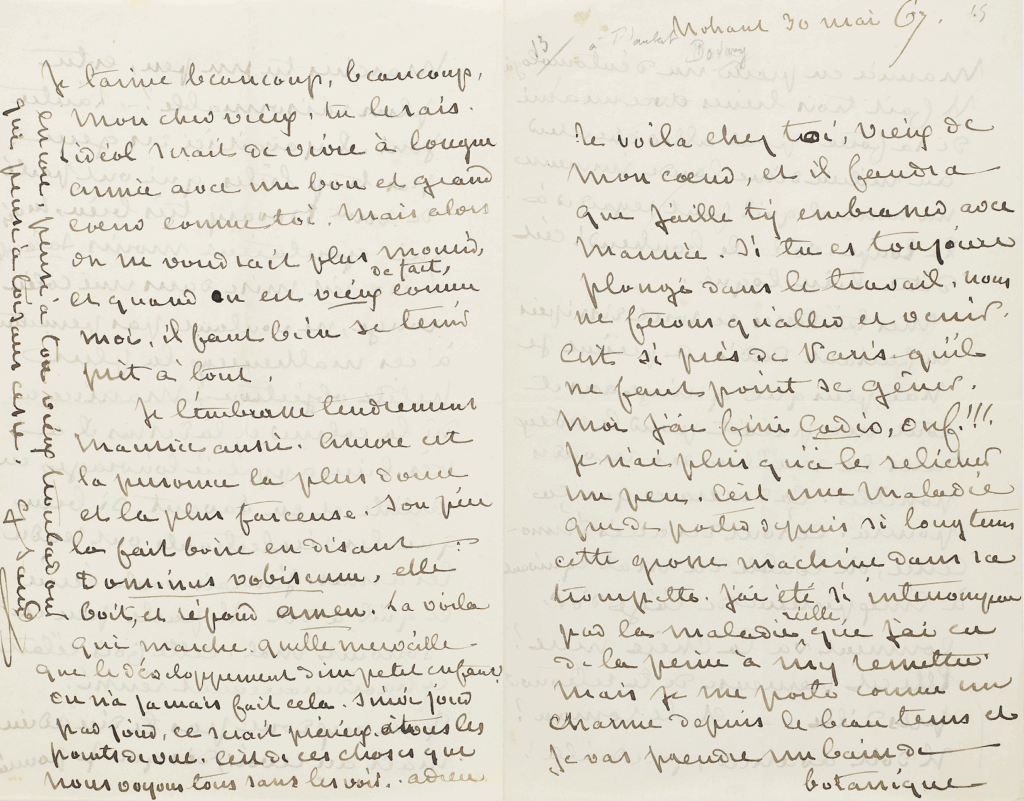 Nohant 30 mai 67.
15
13
à Flaubert
Te voilà chez toi, vieux de
mon coeur, et il faudra
que j'aille t'y embrasser avec
Maurice. Si tu es toujours
plongé dans le travail, nous
ne ferons qu'aller et venir.
C'est si près de Paris qu'il
ne faut point se gêner.
Moi j'ai fini Cadio, ouf!!!
Je n'ai plus qu'à le relicher
un peu. C'est une maladie
que de porter depuis si longtems
cette grosse machine dans sa
trompette. J'ai été si interrompue
par la maladie réelle, que j'ai eu
de la peine à m'y remettre
Mais je me porte comme un
charme depuis le beau tems et
je vas prendre un bain de
botanique
Je t'aime beaucoup, beaucoup,
mon cher vieux, tu le sais.
L'idéal serait de vivre à longue
année avec un bon et grand
coeur comme toi. Mais alors
on ne voudrait plus mourir,
et quand on est vieux de fait, comme
moi, il faut bien se tenir
prêt à tout.
Je t'embrasse tendrement
Maurice aussi. Aurore est
la personne la plus douce
et la plus farceuse. Son père
la fait boire en disant :
Dominus vobiscum, elle
boit, et répond amen. La voilà
qui marche. quelle merveille
que le développement d'un petit enfant!
on n'a jamais fait cela. Suivi jour
par jour, ce serait précieux à tous les
points de vue. C'est de ces choses que
nous voyons tous sans les voir. adieu
encore, pense à ton vieux troubadour
qui pense à toi sans cesse.
G Sand